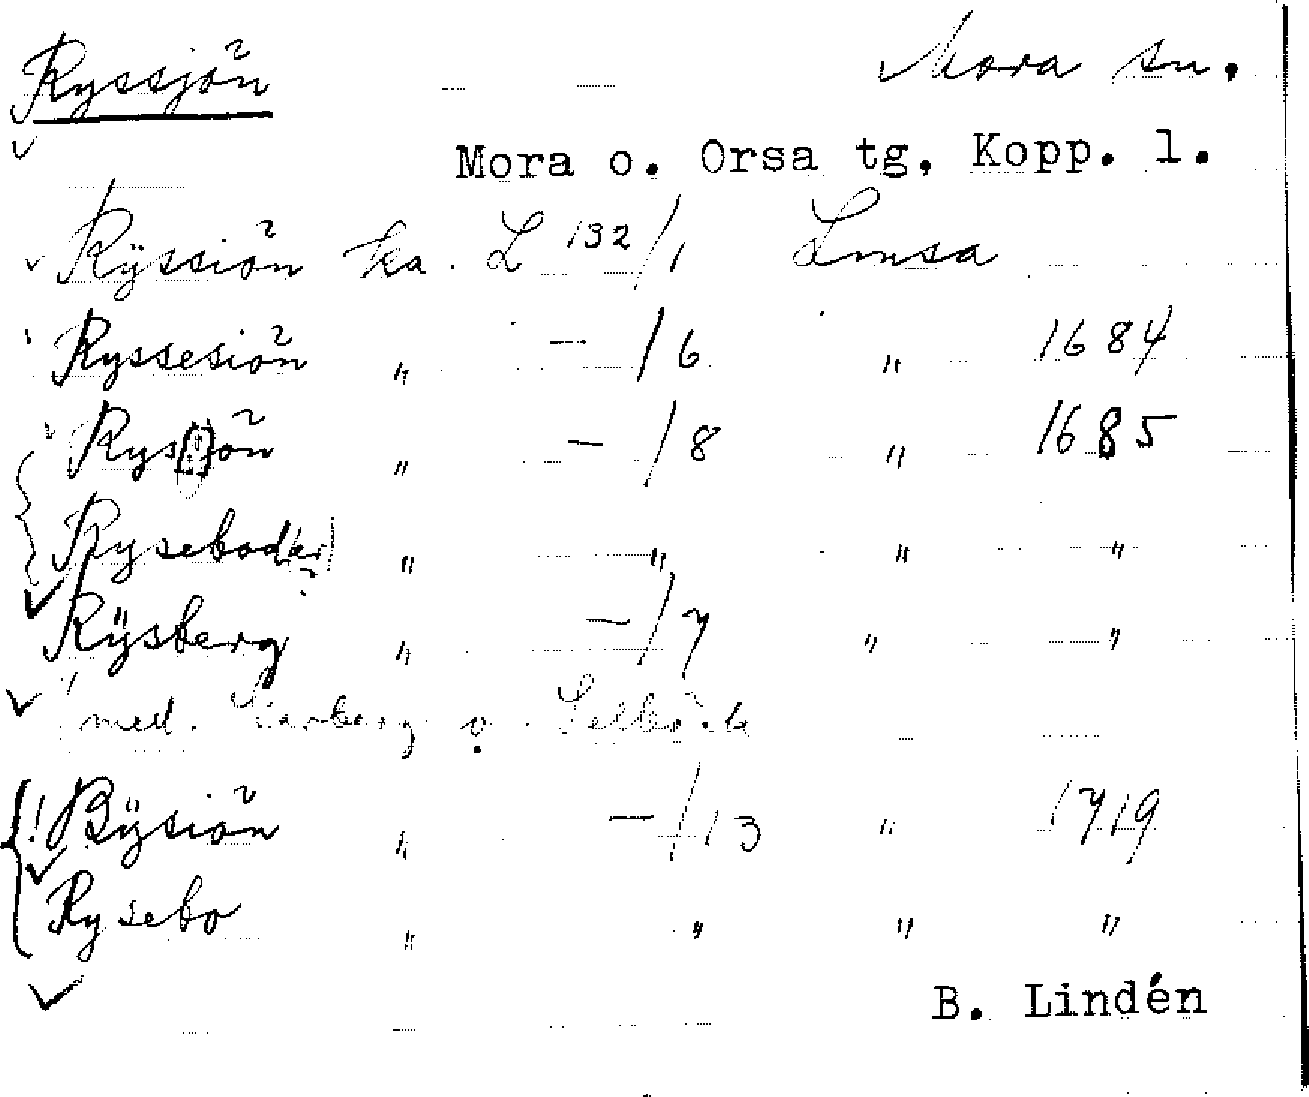 Ryssjön Mora sn.
Mora o. Orsa tg. Kopp. l.
Rÿssiön ka. L 132/1 Lmsa
Ryssesiön " — /6 " 1684
Rys[s]jön " — /8 " 1685
Rysebod(er) " " " "
Rÿsberg " — /7 " — "
med. o.
! Bÿsiön " — /13 " 1719
Rysebo " " " "
B. Lindén